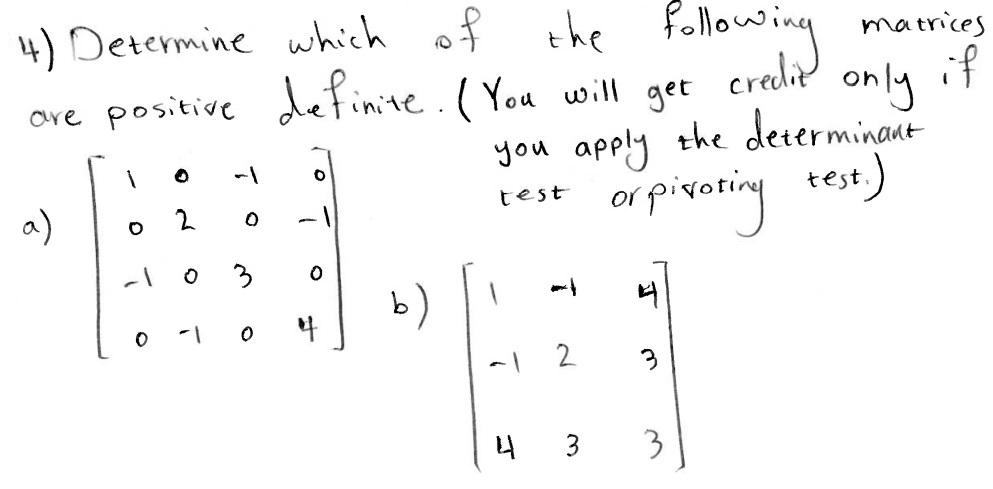 4) Determine which of the following matrices
are positive definite. (You will get credit only if
you apply the determinant
test or pivoting test.)
a)
1 0 -1 0
0 2 0 -1
-1 0 3 0
0 -1 0 4
b)
1 -1 4
-1 2 3
4 3 3